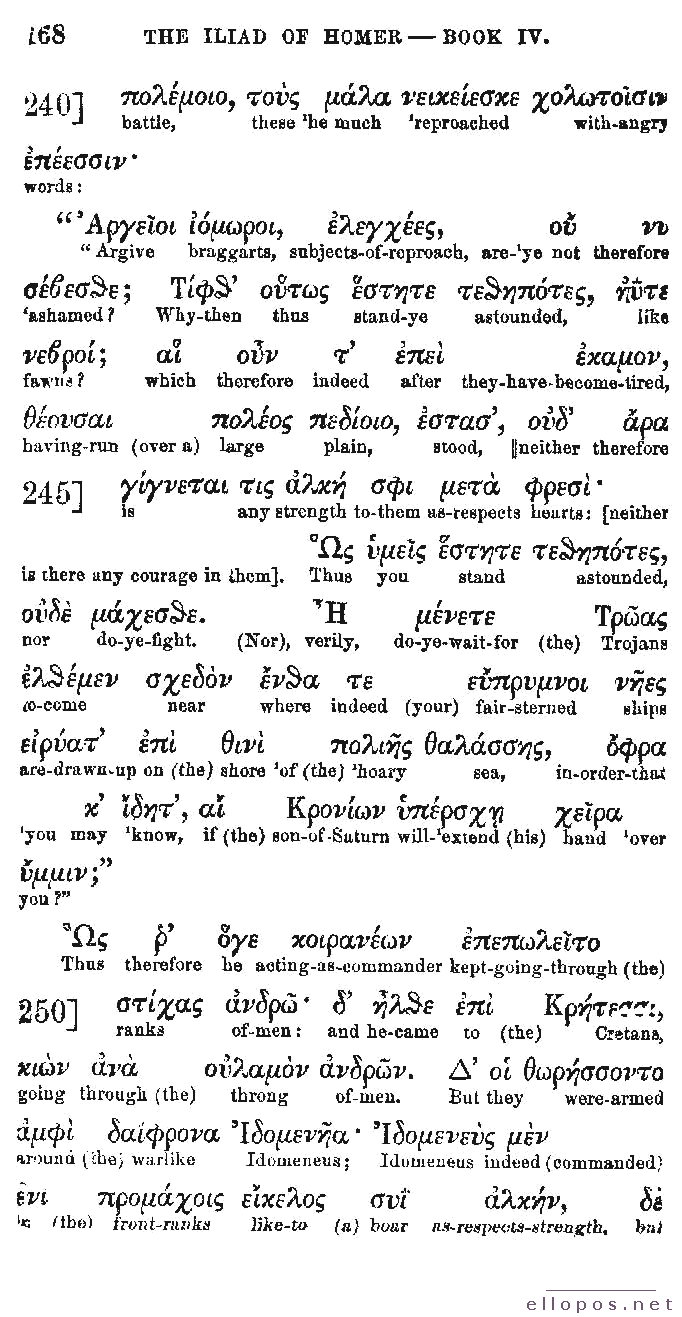 168 THE ILIAD OF HOMER — BOOK IV.
240] πολέμοιο, τοὺς μάλα νεικείεσκε χολωτοῖσιν
battle, these 'he much 'reproached with-angry
ἐπέεσσιν·
words:
“ Ἀργεῖοι ἰόμωροι, ἐλεγχέες, οὔ νυ
“ Argive braggarts, subjects-of-reproach, are-'ye not therefore
σέβεσϑε; Τίφϑ’ οὕτως ἕστητε τεϑηπότες, ἠΰτε
'ashamed? Why-then thus stand-ye astounded, like
νεβροί; αἵ οὖν τ’ ἐπεὶ ἔκαμον,
fawns? which therefore indeed after they-have-become-tired,
θέουσαι πολέος πεδίοιο, ἑστασ’, οὐδ’ ἄρα
having-run (over a) large plain, stood, ‖neither therefore
245] γίγνεται τις ἀλκή σφι μετὰ φρεσὶ·
is any strength to-them as-respects hearts: [neither
Ὣς ὑμεῖς ἕστητε τεϑηπότες,
is there any courage in them]. Thus you stand astounded,
οὐδὲ μάχεσϑε. Ἦ μένετε Τρῶας
nor do-ye-fight. (Nor), verily, do-ye-wait-for (the) Trojans
ἐλϑέμεν σχεδὸν ἔνϑα τε εὔπρυμνοι νῆες
to-come near where indeed (your) fair-sterned ships
εἰρύατ’ ἐπὶ θινὶ πολιῆς θαλάσσης, ὄφρα
are-drawn-up on (the) shore 'of (the) 'hoary sea, in-order-that
κ’ ἴδητ’, αἴ Κρονίων ὑπέρσχῃ χεῖρα
'you may 'know, if (the) son-of-Saturn will-'extend (his) hand 'over
ὔμμιν;”
you?”
Ὣς ῥ’ ὅγε κοιρανέων ἐπεπωλεῖτο
Thus therefore he acting-as-commander kept-going-through (the)
250] στίχας ἀνδρῶ· δ’ ἦλϑε ἐπὶ Κρήτεσσι,
ranks of-men: and he-came to (the) Cretans,
κιὼν ἀνὰ οὐλαμὸν ἀνδρῶν. Δ’ οἱ θωρήσσοντο
going through (the) throng of-men. But they were-armed
ἀμφὶ δαίφρονα Ἰδομενῆα· Ἰδομενεὺς μὲν
around (the) warlike Idomeneus; Idomeneus indeed (commanded)
ἐνι προμάχοις εἴκελος συῒ ἀλκήν, δὲ
in (the) front-ranks like-to (a) boar as-respects-strength, but
ellopos.net